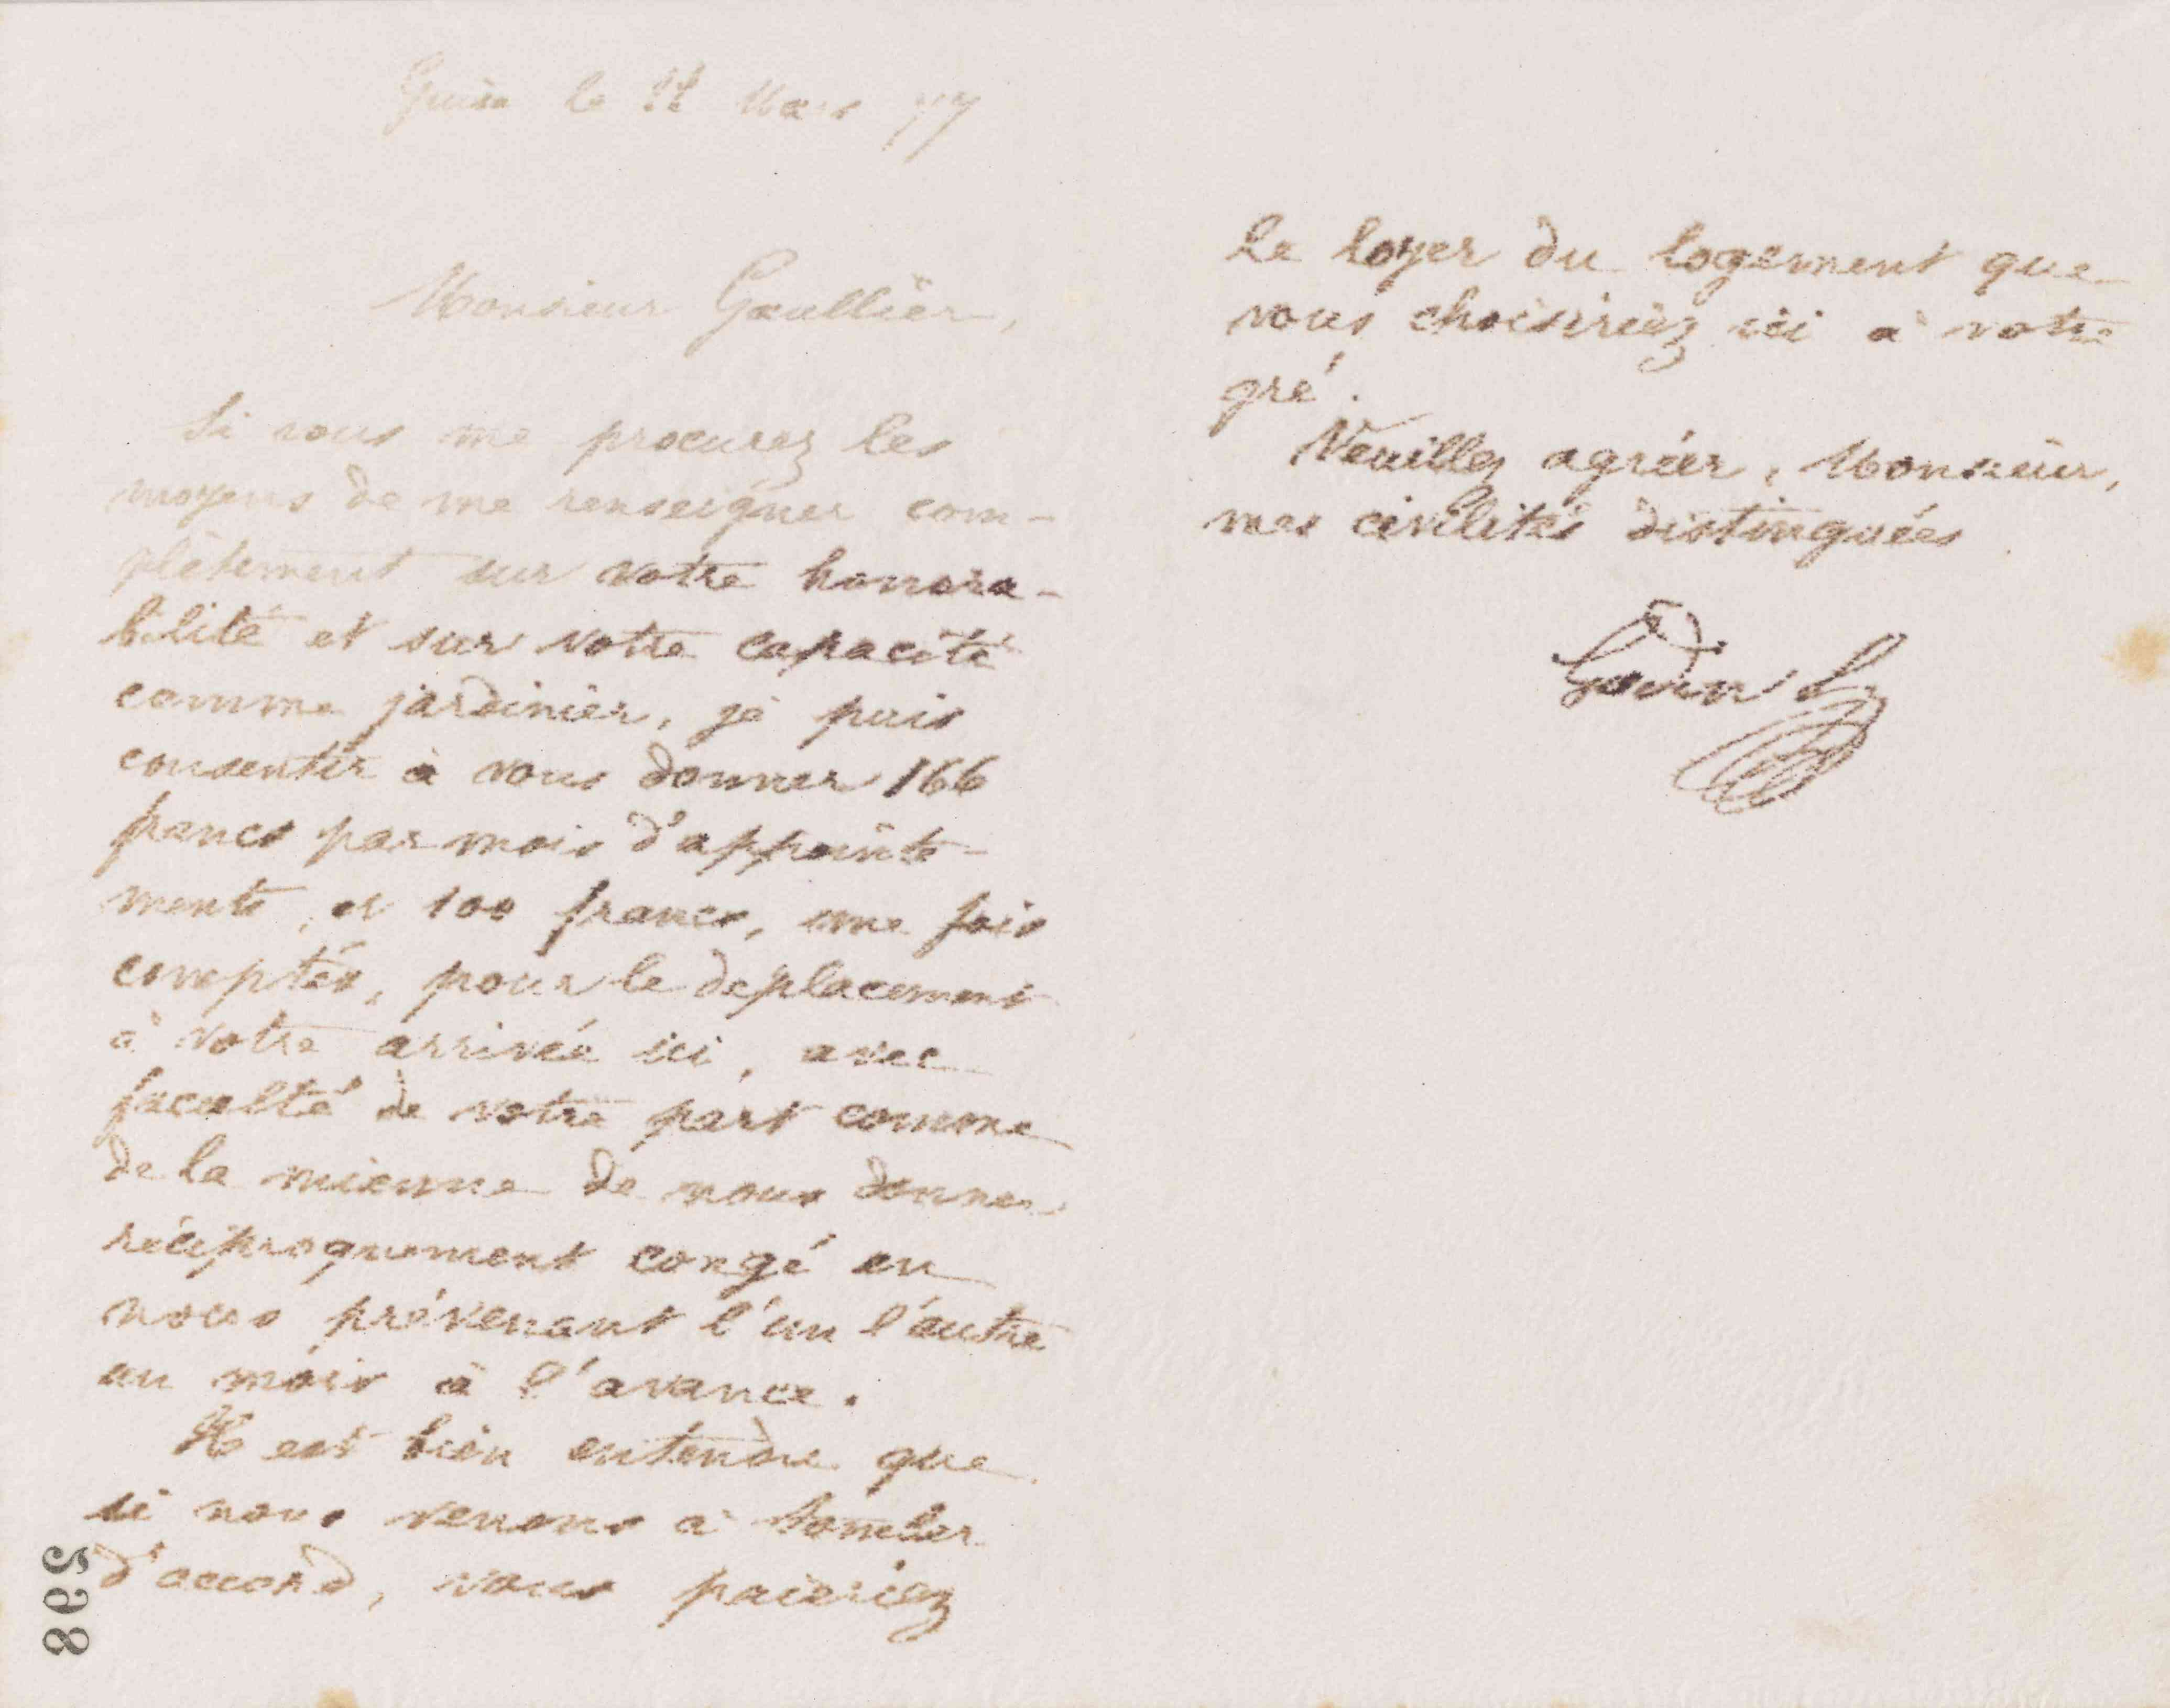 Guise le 22 Mars 77
Monsieur Gaullier,
Si vous me procurez les
moyens de me renseigner com-
plètement sur votre honora-
bilité et sur votre capacité
comme jardinier, je puis
consentir à vous donner 166
francs par mois d'appointe-
ments, et 100 francs, une fois
comptés, pour le déplacement
à votre arrivée ici, avec
faculté de votre part comme
de la mienne de nous donner
réciproquement congé en
nous prévenant l'un l'autre
un mois à l'avance.
Il est bien entendu que
si nous venons à tomber
d'accord, vous paieriez
298
le loyer du logement que
vous choisiriez ici à votre
gré.
Veuillez agréer, Monsieur,
mes civilités distinguées
Godin